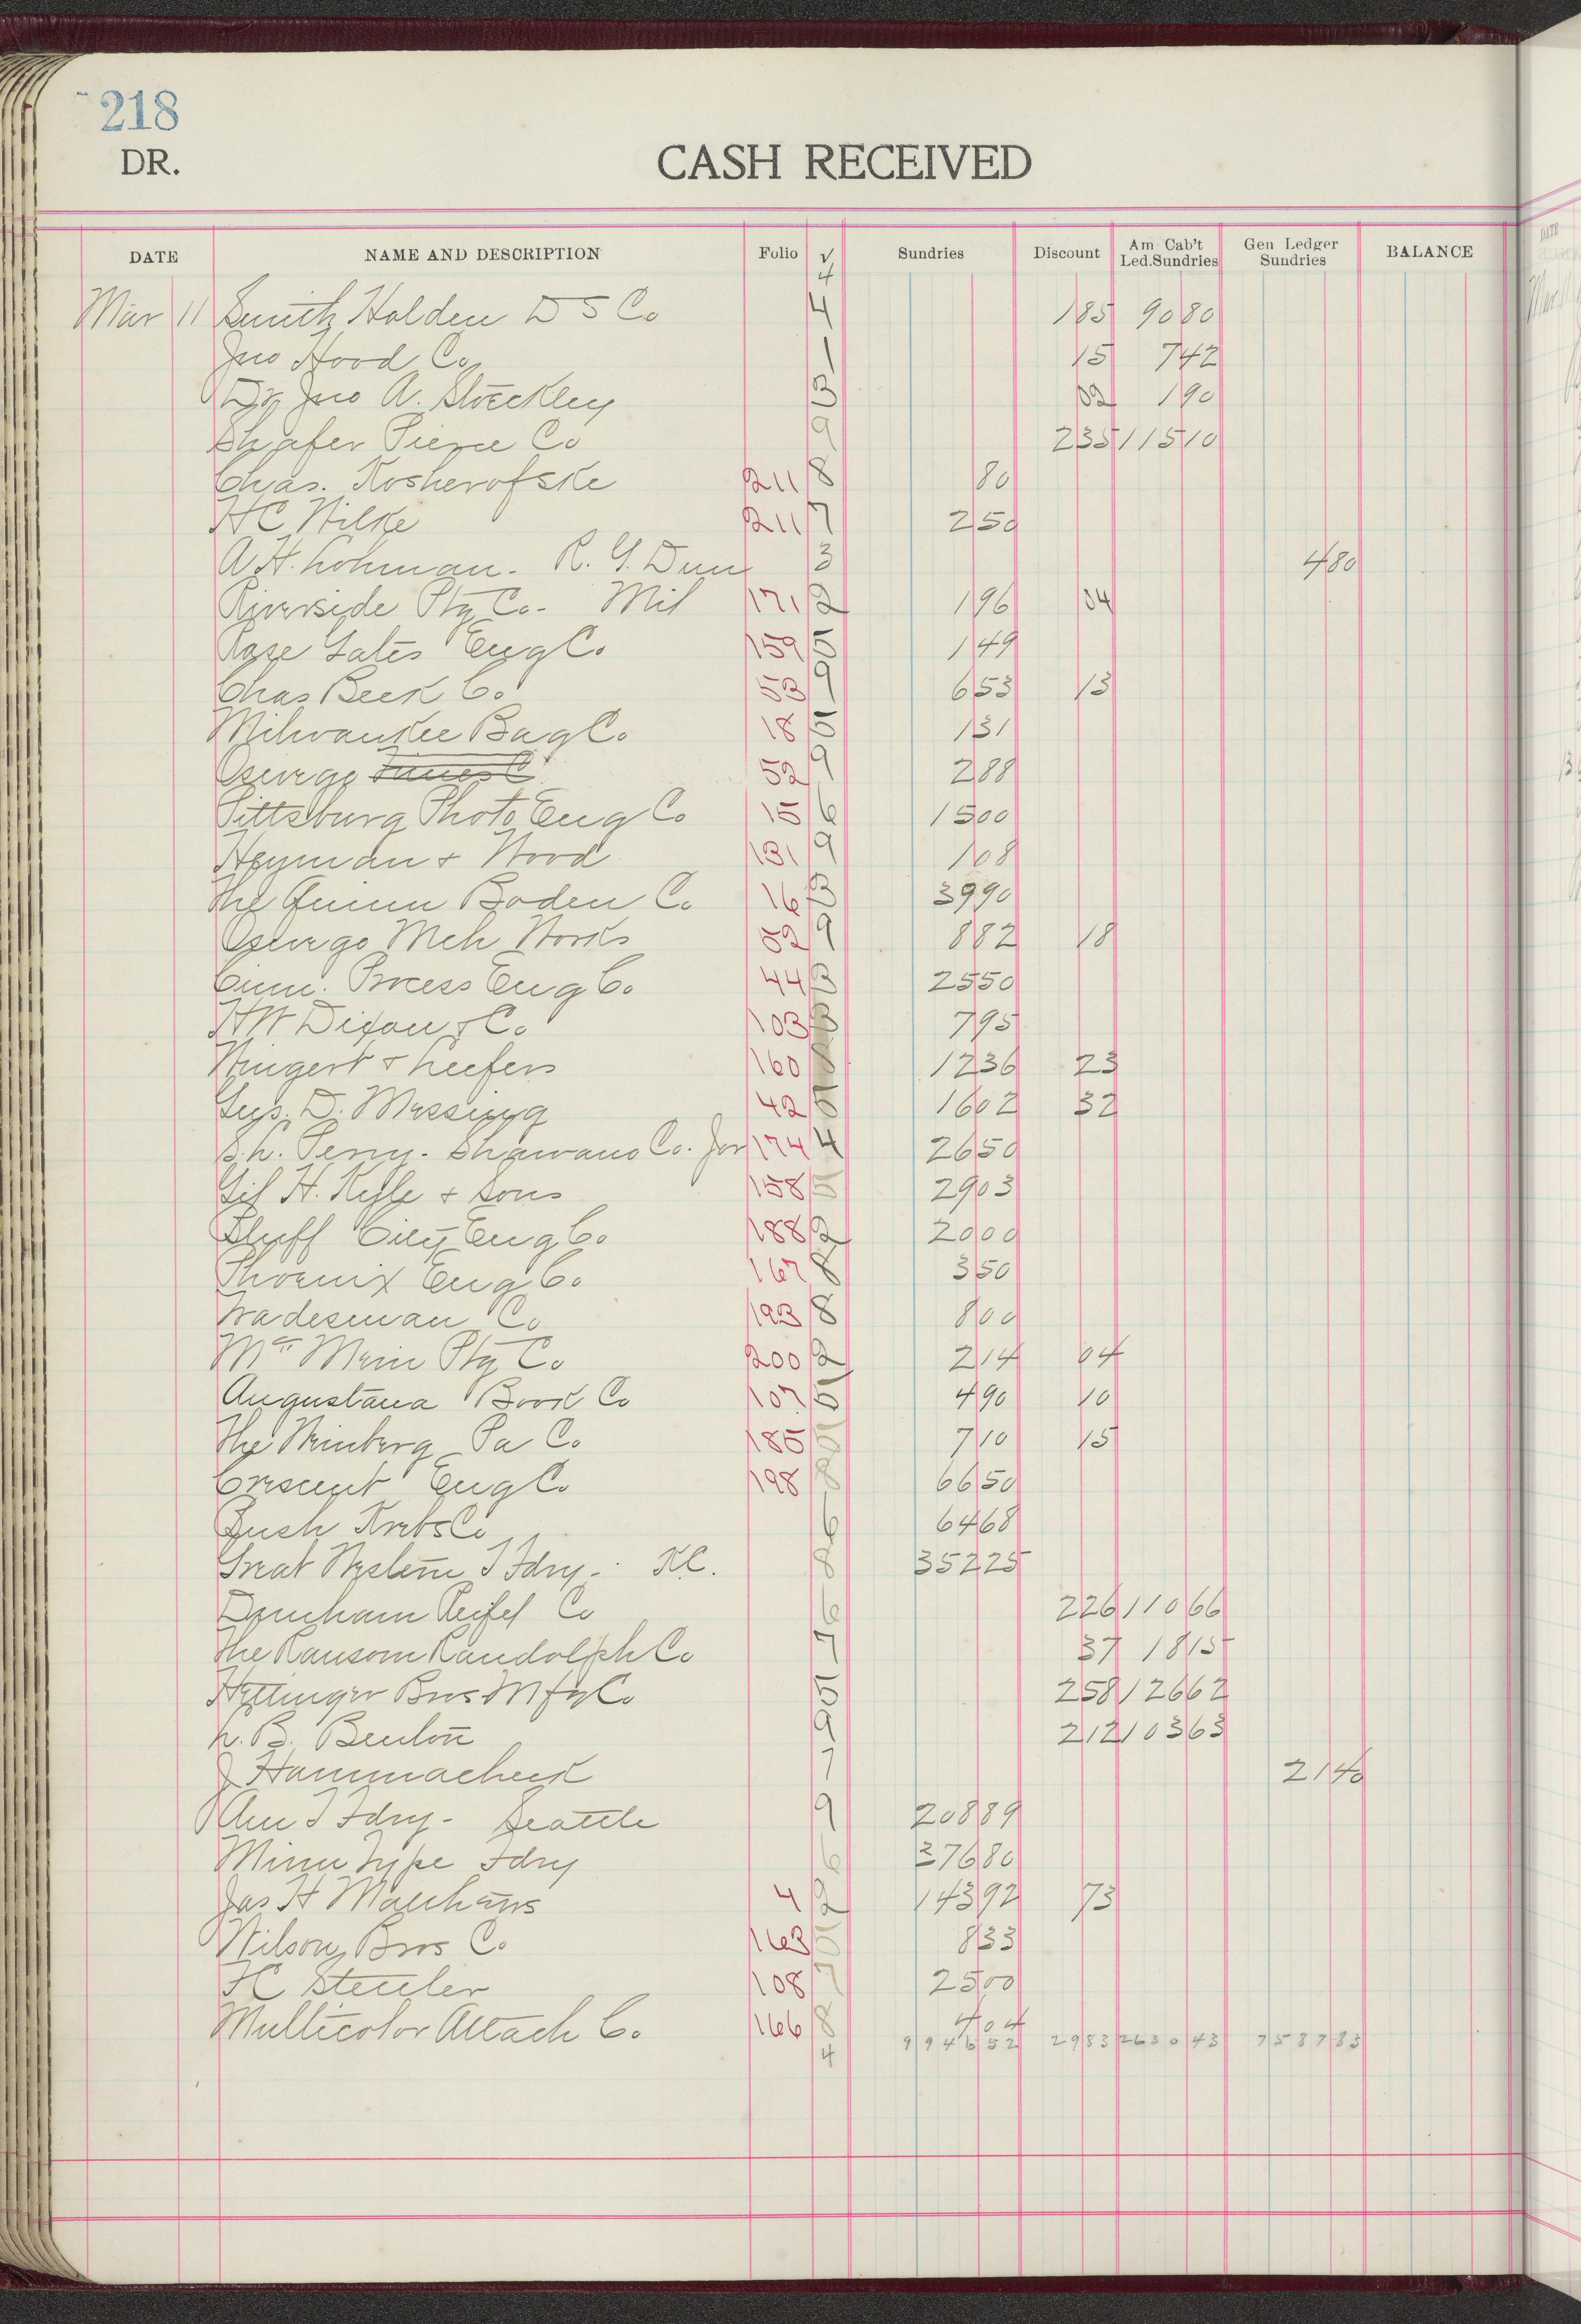 218
DR.
CASH RECEIVED
DATE NAME AND DESCRIPTION Folio √ Sundries Discount Am Cab't Led.Sundries Gen Ledger Sundries BALANCE
4
Mar 11 Smith Holden D S Co 4 185 9080
Jno Hood Co 1 15 742
Dr Jno A. Stoeckley 3 02 190
Shafer Pierce Co 9 235 11510
Chas. Kosherofske 211 8 80
HC Wilke 211 7 250
A.H. Lohman. R. G. Dun 3 480
Riverside Ptg Co. Mil 171 2 196 04
Rose Gates Eng Co. 159 5 149
Chas Beck Co. 53 9 653 13
Milwaukee Bag Co. 18 5 131
Oswego Times C 52 9 288
Pittsburg Photo Eng Co 15 6 1500
Heyman & Wood 131 9 108
The Quinn Boden Co. 16 3 3990
Oswego Mch Works 52 9 882 18
Cinn. Process Eng Co. 44 3 2550
HW Dixon & Co. 103 3 795
Wingert & Leefers 160 8 1236 23
Gus. D. Messing 42 5 1602 32
S.L. Perry. Shawano Co. Jor 174 4 2650
Gif H. Kyle & Sons 158 5 2903
Bluff City Eng Co. 188 2 2000
Phoenix Eng Co. 167 8 350
Tradesman Co. 193 8 800
Mt Mein Ptg Co 200 2 214 04
Augustana Book Co 107 5 490 10
The Weinberg Pa Co. 185 5 710 15
Crescent Eng Co. 198 8 6650
Bush Krebs Co 6 6468
Great Western T Fdry. K.C. 8 35225
Dunham Reifel Co 6 226 11066
The Ransom Randolph Co. 7 37 1815
Hettinger Bros Mfg Co 5 258 12662
L. B. Benton 9 212 10363
J Hammacheck 7 2140
Am T Fdry - Seattle 9 20889
Minn Type Fdry 6 37680
Jas H Matthews 4 2 14392 73
Wilson Bros Co. 163 5 833
FC Stettler 108 7 2500
Multicolor Attach Co. 166 8 404
4 994652 2983 263043 758783